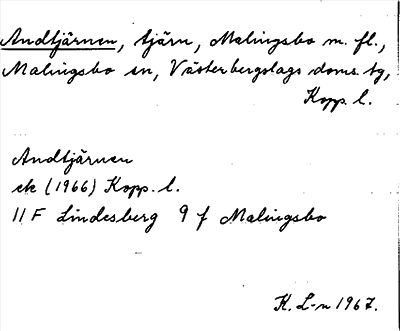 Andtjärnen, tjärn, Malingsbo m. fl.,
Malingsbo sn, Västerbergslags doms. tg,
Kopp. l.
Andtjärnen
ek (1966) Kopp. l.
11 F Lindesberg 9 f Malingsbo
K. L-n 1967.